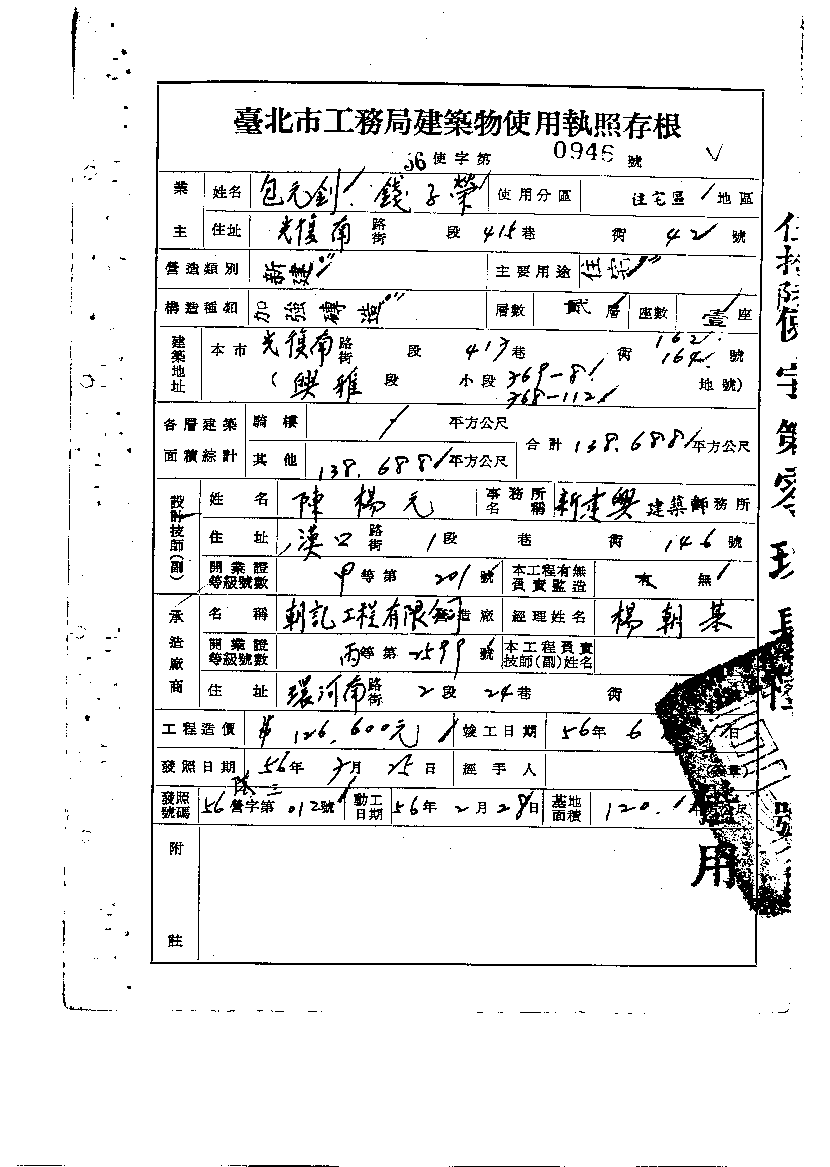 臺北市工務局建築物使用執照存根
56使字第 0946 號
業主 姓名 包元釗 錢子榮 使用分區 住宅區 地區
住址 光復南 路街 段 415巷 街 42 號
營造類別 新建 主要用途 住宅
構造種類 加強磚造 層數 貳層 座數 壹座
建築地址 本市 光復南 路街 段 417巷 街 162 164 號
(興雅 段 小段 369-8 368-112 地號)
各層建築面積綜計 騎樓 / 平方公尺 合計 138.688 平方公尺
其他 138.688 平方公尺
設計技師(副) 姓名 陳楊元 事務所名稱 新建興 建築師務所
住址 漢口 路街 1段 巷 街 146 號
開業證等級號數 甲等第 201 號 本工程有無負責監造 有 無
承造廠商 名稱 朝記工程有限公司 營造廠 經理姓名 楊朝基
開業證等級號數 丙等第 2599 號 本工程負責技師(副)姓名
住址 環河南 路街 2段 24巷 街
工程造價 126,600元 竣工日期 56年 6 日
發照日期 56年 7月 25日 經手人
發照號碼 56營字第012號 動工日期 56年 2月 28日 基地面積 120.
附註
使字第零
用